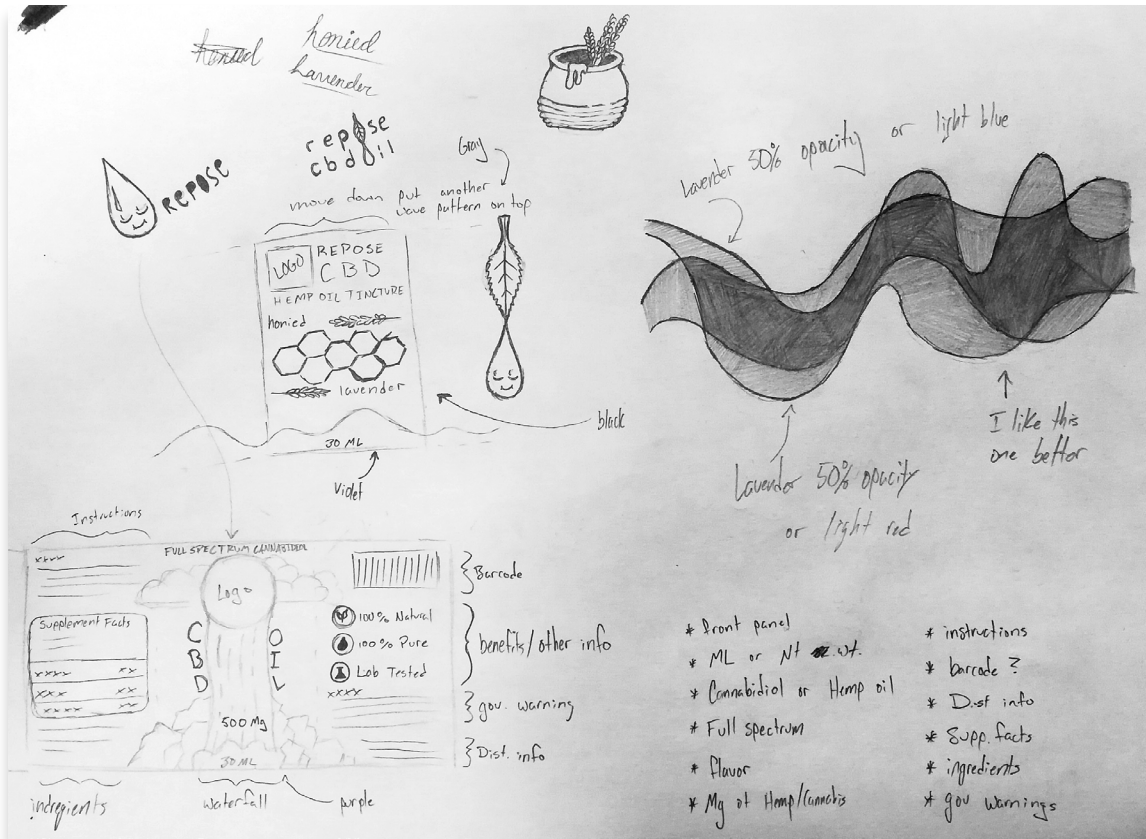 honied
honied
Lavender
repose
cbd oil
REPOSE
Gray
move down put another
wave pattern on top
LOGO
REPOSE
CBD
HEMP OIL TINCTURE
honied
lavender
30 ML
black
Violet
Lavender 50% opacity or light blue
I like this
one better
Lavender 50% opacity
or light red
Instructions
xxxx
FULL SPECTRUM CANNABIDIOL
Logo
Supplement Facts
xxxx xx
xxx xx
xxxx xx
CBD
OIL
500 Mg
30 ML
100% Natural
100% Pure
Lab Tested
xxxx
Barcode
benefits/other info
gov. warning
Dist. info
indregients
waterfall
purple
* front panel
* ML or Nt wt.
* Cannabidiol or Hemp oil
* Full spectrum
* flavor
* Mg of Hemp/Cannabis
* instructions
* barcode ?
* Dist info
* Supp. facts
* ingredients
* gov warnings